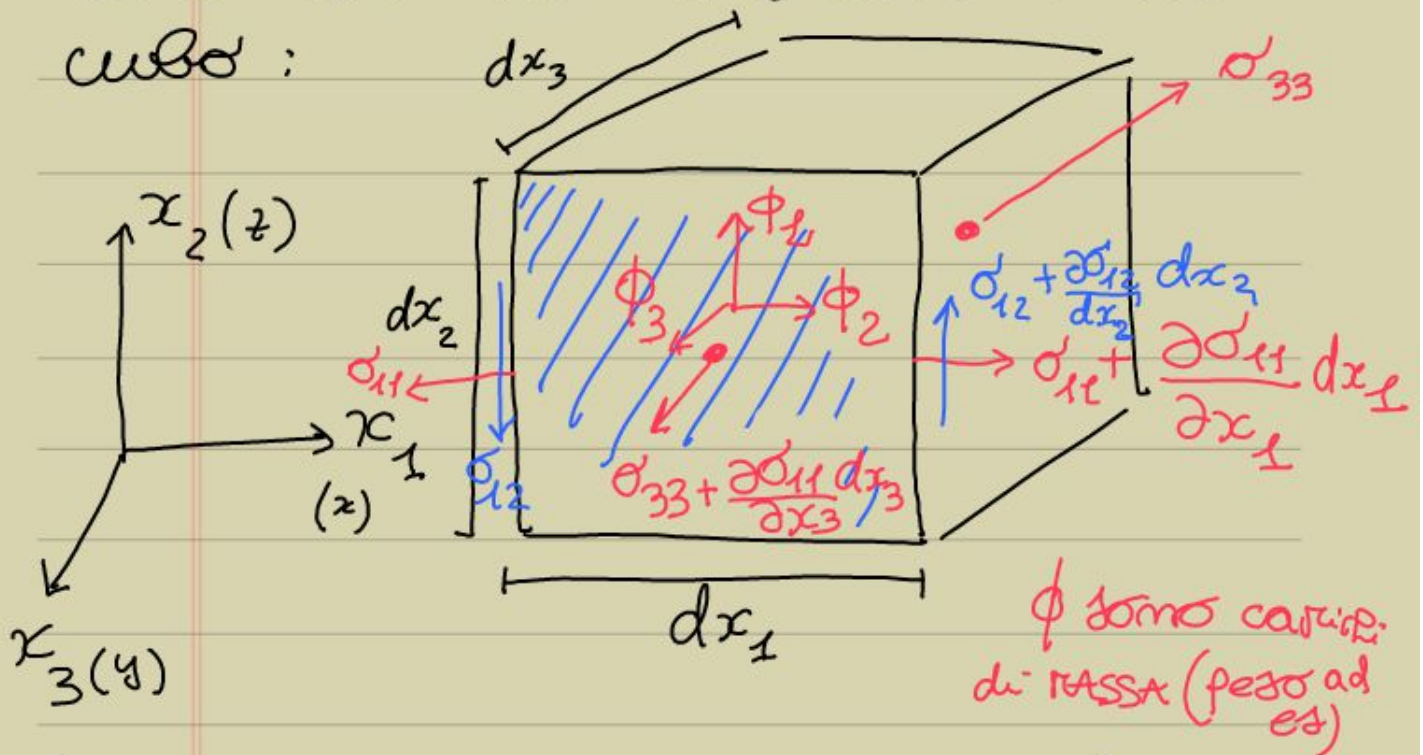 cubo :
dx_3
σ_33
x_2 (z)
ϕ_1
ϕ_3
ϕ_2
σ_12 + ∂σ_12/dx_2 dx_2
dx_2
σ_11
σ_11 + ∂σ_11/∂x_1 dx_1
x_1
(x)
σ_12
σ_33 + ∂σ_11/∂x_3 dx_3
dx_1
x_3 (y)
ϕ sono carichi
di MASSA (peso ad
es)